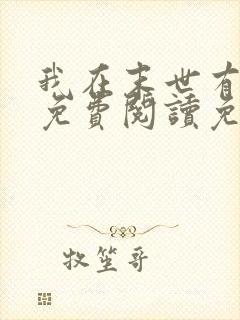 我在末世有
免費閱讀免
牧笙哥